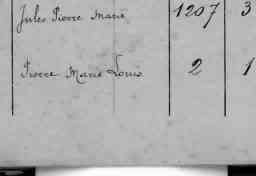 Jules Pierre Marie 1207 3
Pierre Marie Louis 2 1